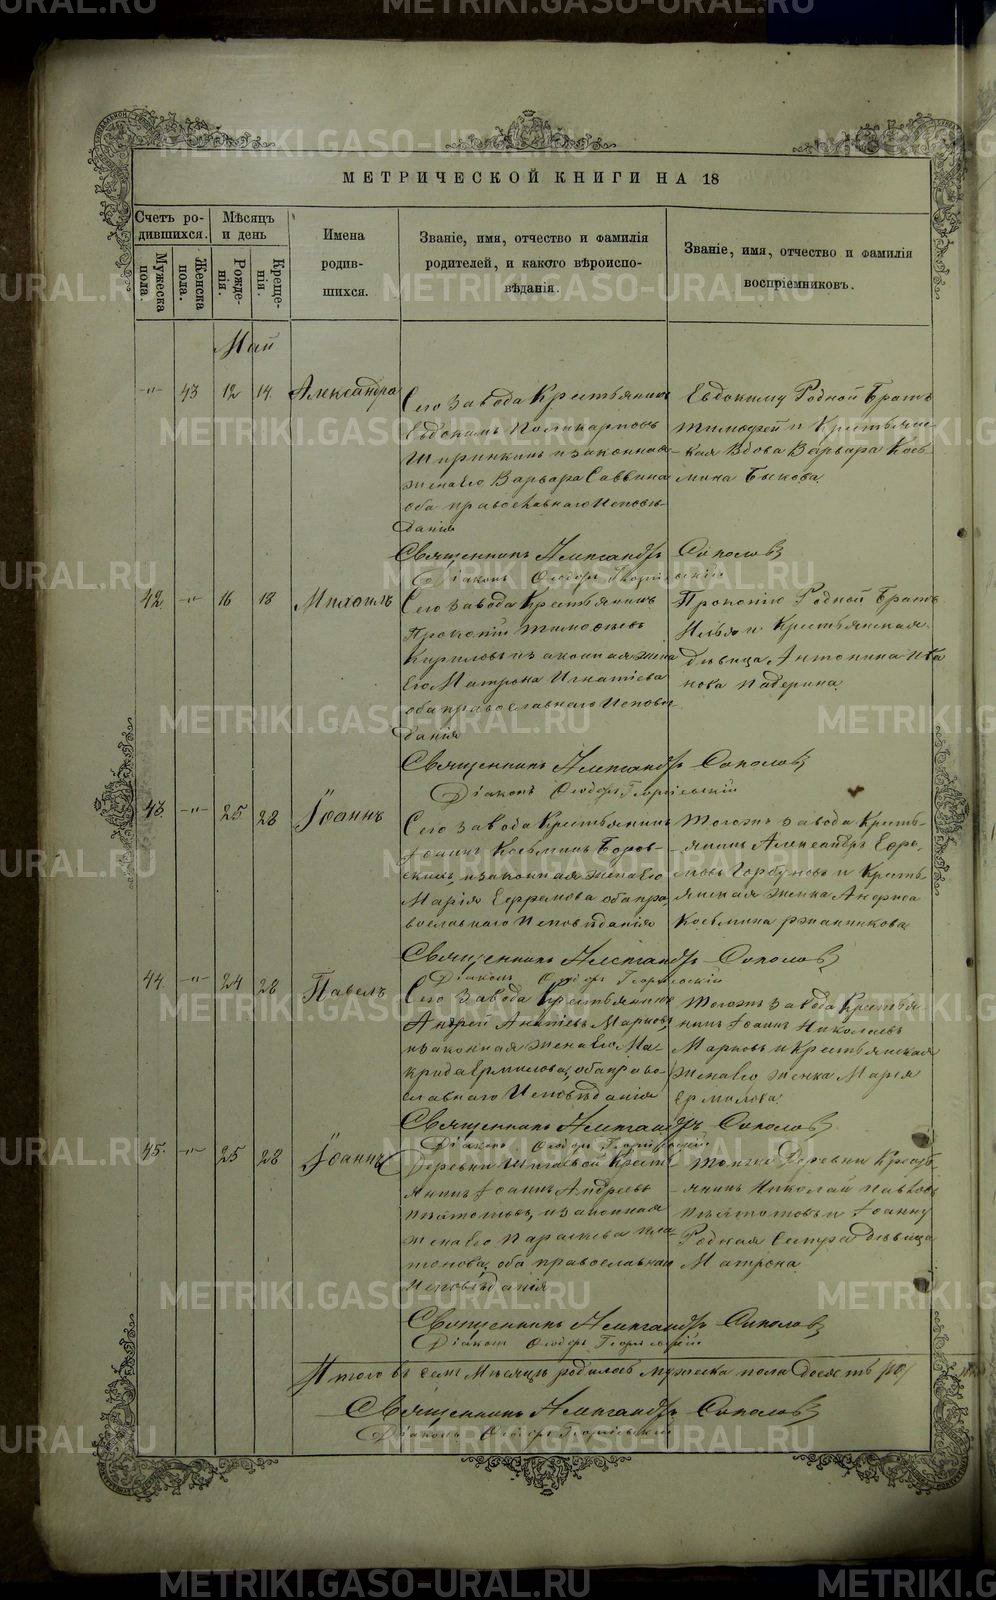 МЕТРИЧЕСКОЙ КНИГИ НА 18
Счетъ ро-
дившихся.
Мужеска
пола.
Женска
пола.
Мѣсяцъ
и день
Рожде-
нія.
Креще-
нія.
Имена
родив-
шихся.
Званіе, имя, отчество и фамилія
родителей, и какого вѣроиспо-
вѣданія.
Званіе, имя, отчество и фамилія
воспріемниковъ.
Май
-"- 43 12 14 Александра
Сего завода Крестьянинъ
Евдокимъ Поликарповъ
Ширинкинъ и законная
жена его Варвара Саввина
оба православнаго Исповѣ-
данія
Евдокиму Родной Братъ
Тимофей и Крестьянс-
кая Вдова Варвара Козь-
мина Быкова
Священникъ Александръ Соколовъ
Діаконъ Ѳеодоръ Георгіевскій
42 -"- 16 18 Михаилъ
Сего завода Крестьянинъ
Прокопій Тимофеевъ
Кириловъ и законная жена
его Матрона Игнатіева
оба православнаго Исповѣ-
данія
Прокопію Родной Братъ
Илья и Крестьянская
дѣвица Антонина Ива
нова Падерина
Священникъ Александръ Соколовъ
Діаконъ Ѳеодоръ Георгіевскій
43. -"- 25 28 Іоаннъ
Сего завода Крестьянинъ
Іоаннъ Козьминъ Боров-
скихъ, и законная жена его
Марія Ефремова оба пра
вославнаго Исповѣданія
Тогожъ завода Кресть-
янинъ Александръ Ефре-
мовъ Горбуновъ и Кресть-
янская женка Анфиса
Козьмина
Священникъ Александръ Соколовъ
Діаконъ Ѳеодоръ Георгіевскій
44. -"- 24 28 Павелъ
Сего Завода Крестьянинъ
Андрей Марковъ
и законная жена его Ма-
крида Ермилова, оба право-
славнаго Исповѣданія
Тогожъ завода Крестья
нинъ Іоаннъ Николаевъ
Марковъ и Крестьянская
женка Марія
Ермилова
Священникъ Александръ Соколовъ
Діаконъ Ѳеодоръ Георгіевскій
45. -"- 25 28 Іоаннъ
Деревни Кресть
янинъ Іоаннъ Андреевъ
и законная
жена его Параскева Пла
тонова, оба православнаго
Исповѣданія
Тойже Деревни Кресть
янинъ Николай Павловъ
и Іоанну
Родная Сестра дѣвица
Матрона
Священникъ Александръ Соколовъ
Діаконъ Ѳеодоръ Георгіевскій
Итого въ семъ Мѣсяцѣ родилось мужеска пола десять /10/
Священникъ Александръ Соколовъ
Діаконъ Ѳеодоръ Георгіевскій
METRIKI.GASO-URAL.RU